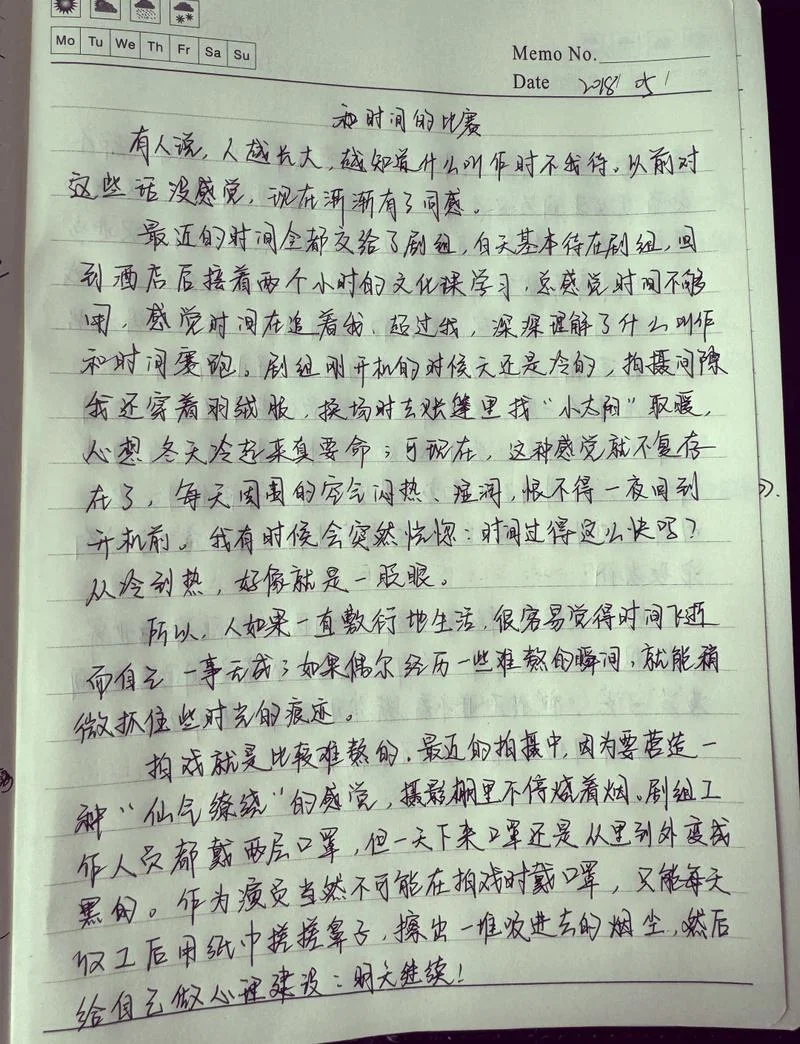 Mo Tu We Th Fr Sa Su
Memo No.
Date 2018 / 05 /
和时间的比赛
有人说，人越长大，越知道什么叫作时不我待。以前对
这些话没感觉，现在渐渐有了同感。
最近的时间全都交给了剧组，白天基本待在剧组，回
到酒店后接着两个小时的文化课学习，总感觉时间不够
用，感觉时间在追着我、超过我，深深理解了什么叫作
和时间赛跑。剧组刚开机的时候天还是冷的，拍摄间隙
我还穿着羽绒服，换场时去账篷里找“小太阳”取暖，
心想冬天冷起来真要命；可现在，这种感觉就不复存
在了，每天周围的空气闷热、湿润，恨不得一夜回到
开机前。我有时候会突然恍惚：时间过得这么快吗？
从冷到热，好像就是一眨眼。
所以，人如果一直敷衍地生活，很容易觉得时间飞逝
而自己一事无成；如果偶尔经历一些难熬的瞬间，就能稍
微抓住些时光的痕迹。
拍戏就是比较难熬的，最近的拍摄中，因为要营造一
种“仙气缭绕”的感觉，摄影棚里不停烧着烟。剧组工
作人员都戴两层口罩，但一天下来口罩还是从里到外变成
黑的。作为演员当然不可能在拍戏时戴口罩，只能每天
收工后用纸巾搓搓鼻子，擦出一堆吸进去的烟尘，然后
给自己做心理建设：明天继续！